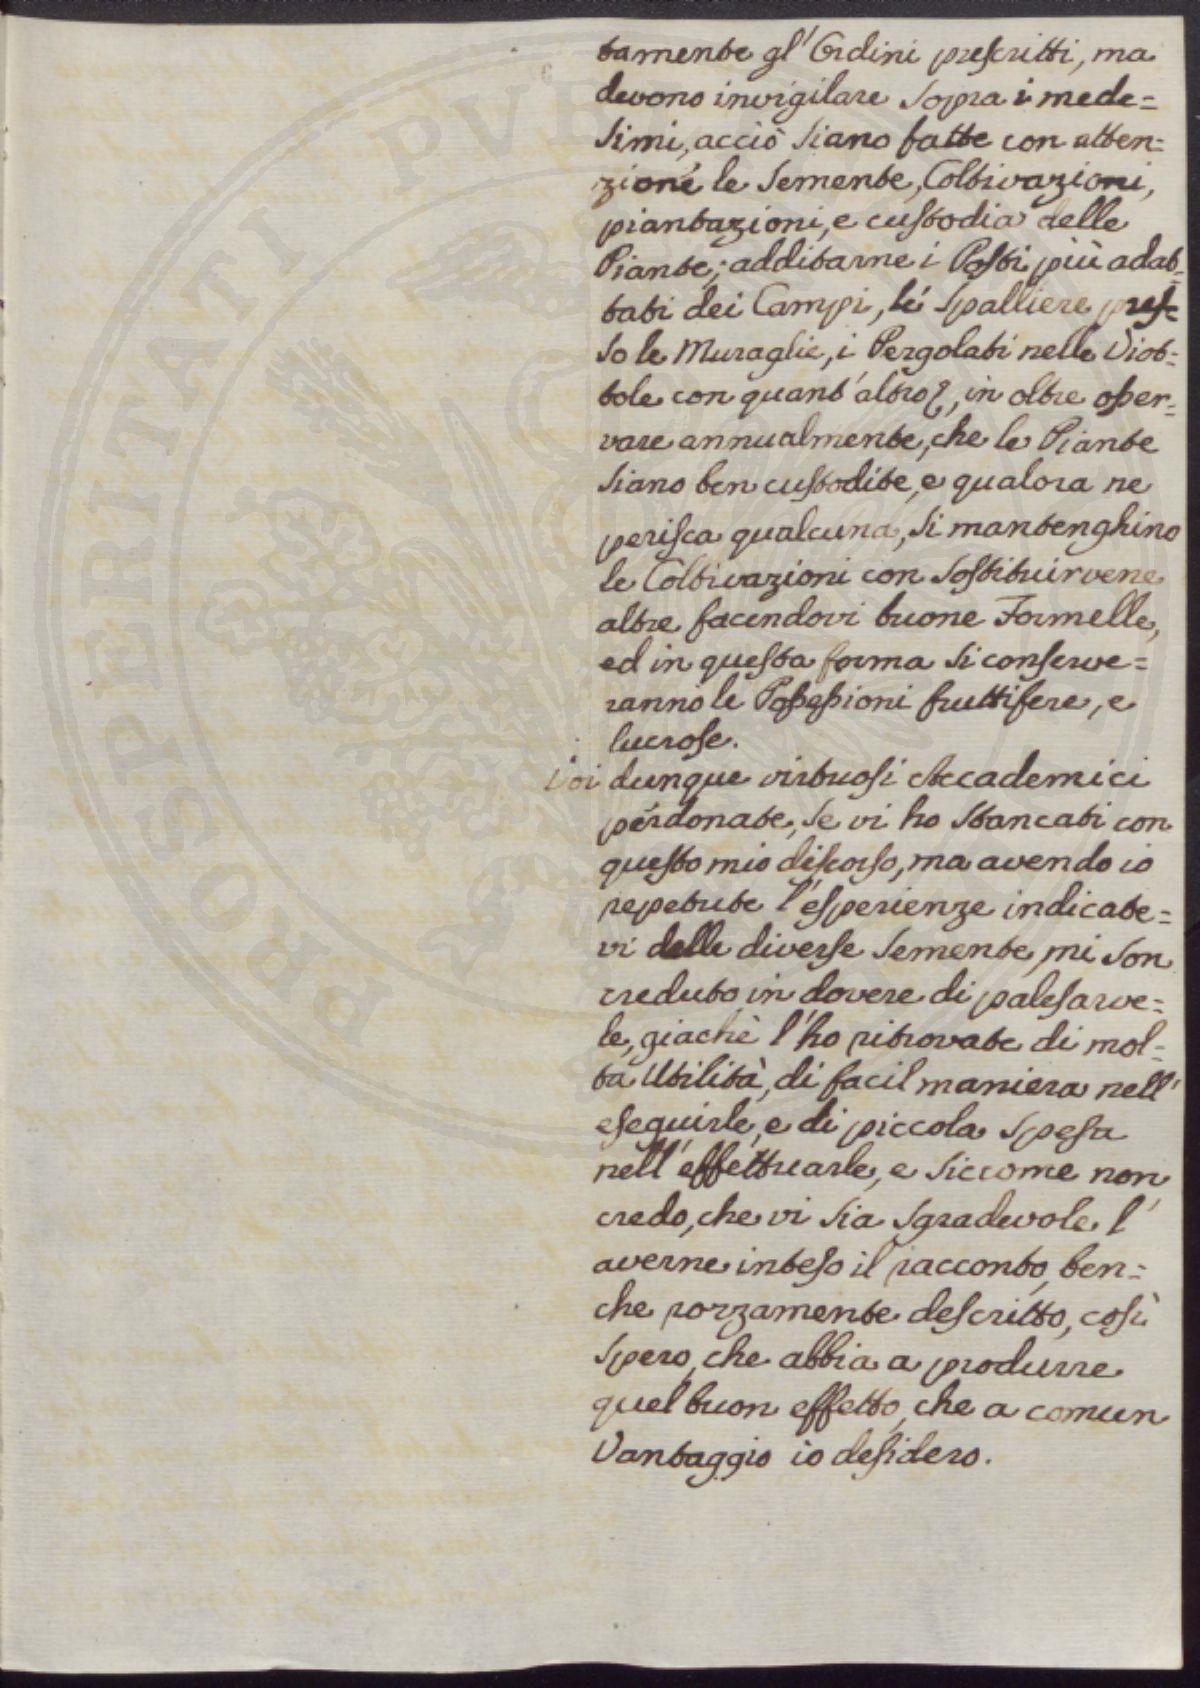 tamente gl'Ordini prescritti, ma
devono invigilare sopra i mede=
simi, acciò siano fatte con atten=
zione le Semente, Coltivazioni,
piantazioni, e custodia delle
Piante; additarne i Posti più adat=
tati dei Campi, le Spalliere pres=
so le Muraglie, i Pergolati nelle Viot=
tole con quant'altro, in oltre osser=
vare annualmente, che le Piante
siano ben custodite, e qualora ne
perisca qualcuna, si mantenghino
le Coltivazioni con sostituirvene
altre facendovi buone Formelle,
ed in questa forma si conserve=
ranno le Possessioni fruttifere, e
lucrose.
Voi dunque virtuosi Accademici
perdonate, se vi ho stancati con
questo mio discorso, ma avendo io
repetute l'esperienze indicate=
vi delle diverse Semente, mi son
creduto in dovere di palesarve=
le, giachè l'ho ritrovate di mol=
ta Utilità, di facil maniera nell'
eseguirle, e di piccola spesa
nell'effettuarle, e siccome non
credo, che vi sia sgradevole l'
averne inteso il racconto, ben=
che rozzamente descritto, così
spero, che abbia a produrre
quel buon effetto, che a comun
Vantaggio io desidero.
PROSPERITATI